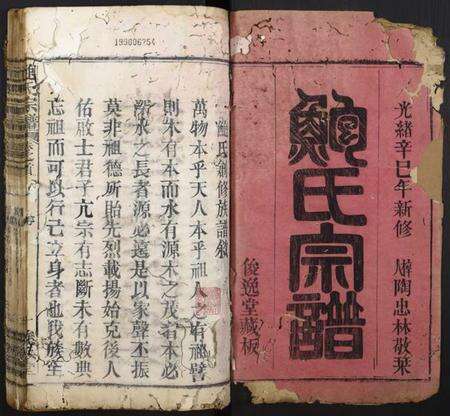 光緒辛巳年新修
陶忠林敬栞
鮑氏宗譜
俊逸堂藏板
199606254
鮑氏新修族譜敘
萬物本乎天人本乎祖人之有祖譬
則木有本而水有源木之茂者本必
水之長者源必遠是以家聲不振
莫非祖德所貽先烈載揚始克後人
佑啟士君子亢宗有志斷未有數典
忘祖而可以行己立身者也我族在